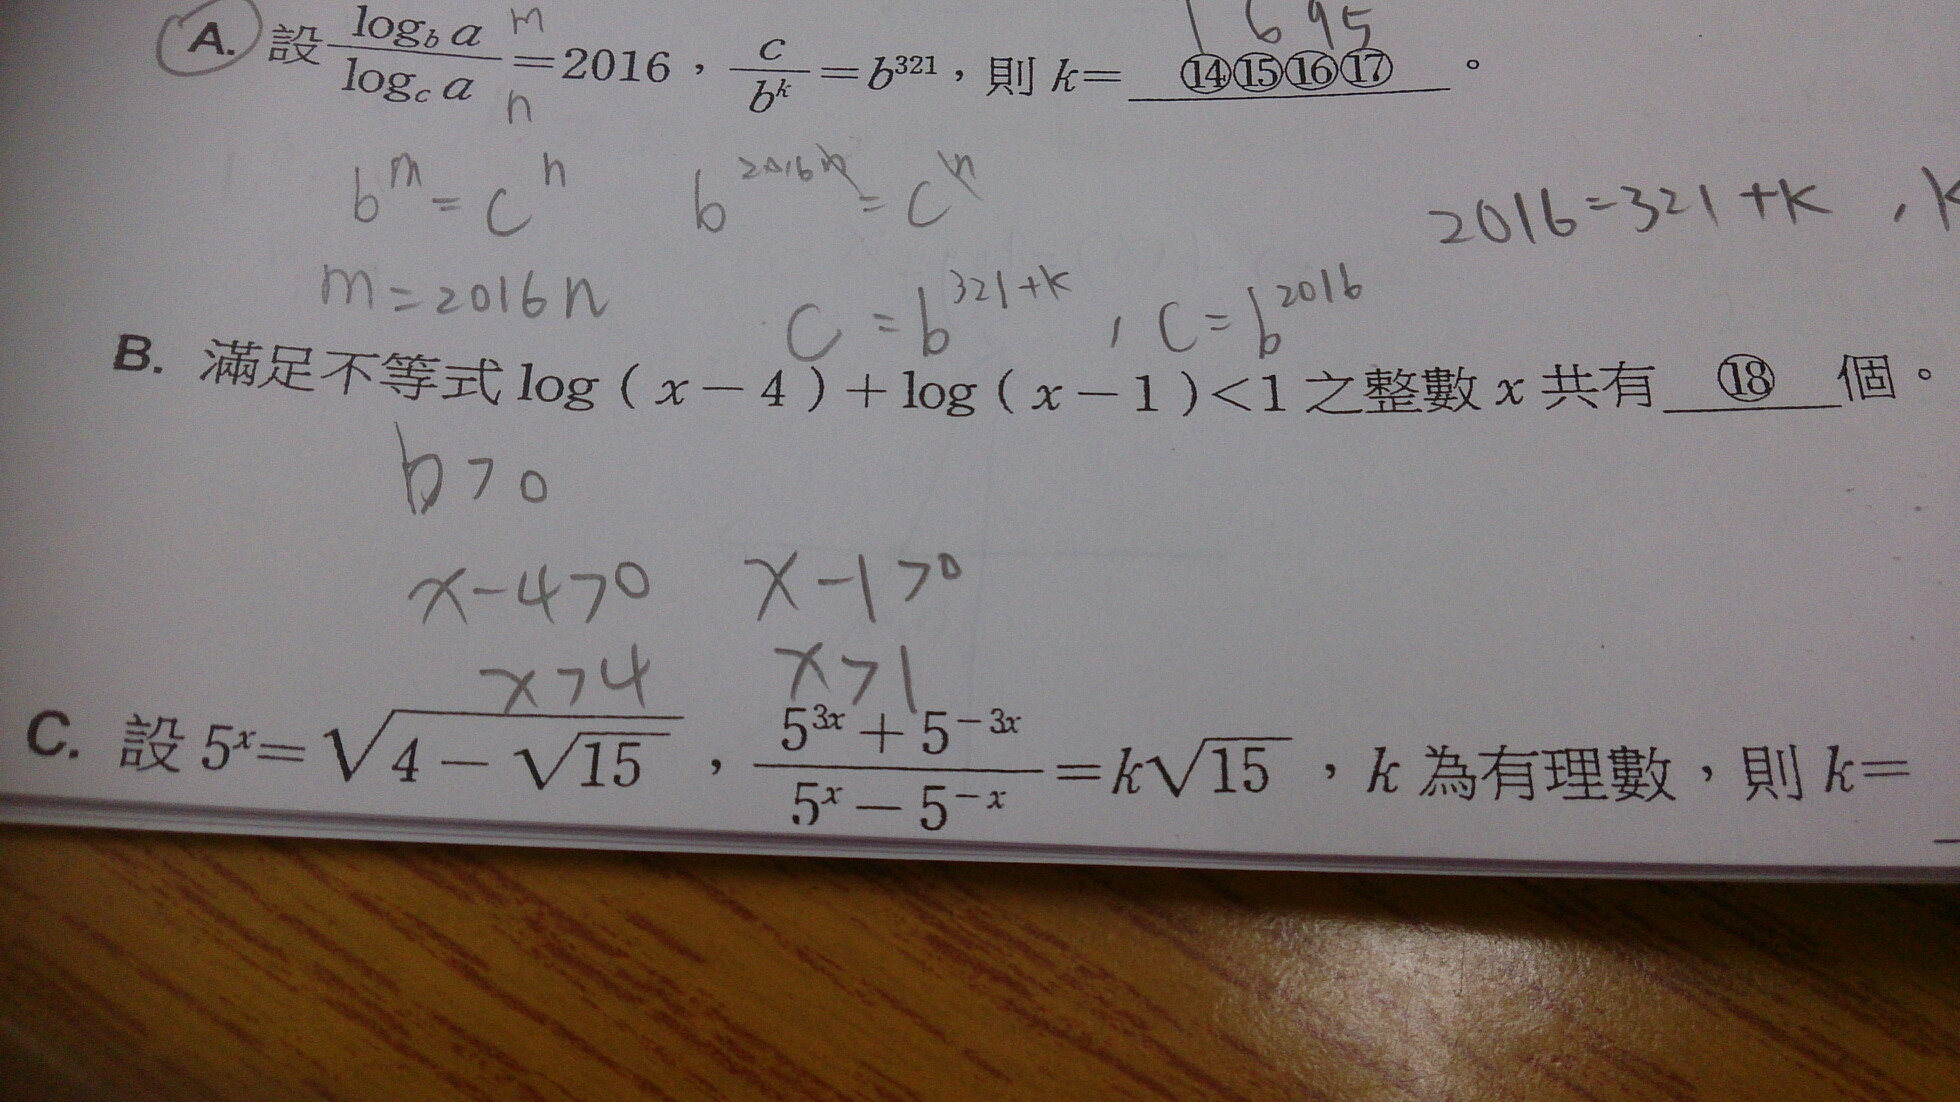 1 6 9 5
A. 設 log_b a / log_c a = 2016，c / b^k = b^321，則 k= ⑭⑮⑯⑰ 。
m
n
b^m = c^n  b^2016n = c^n
2016=321+k ,k
m=2016n  c = b^321+k , c = b^2016
B. 滿足不等式 log（x－4）＋log（x－1）<1 之整數 x 共有 ⑱ 個。
b>0
x-4>0  x-1>0
x>4  x>1
C. 設 5^x=√(4－√15)，(5^3x＋5^－3x) / (5^x－5^－x)=k√15，k 為有理數，則 k=